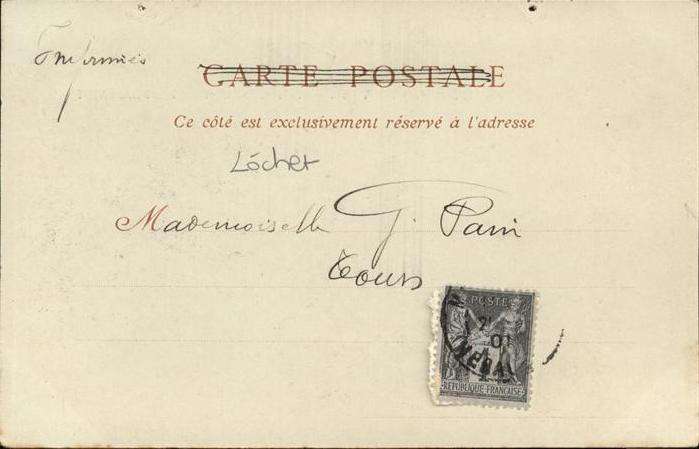 Imprimés
CARTE POSTALE
Ce côté est exclusivement réservé à l'adresse
Lócher
Mademoiselle G. Parin
Tours
POSTE
RÉPUBLIQUE FRANÇAISE